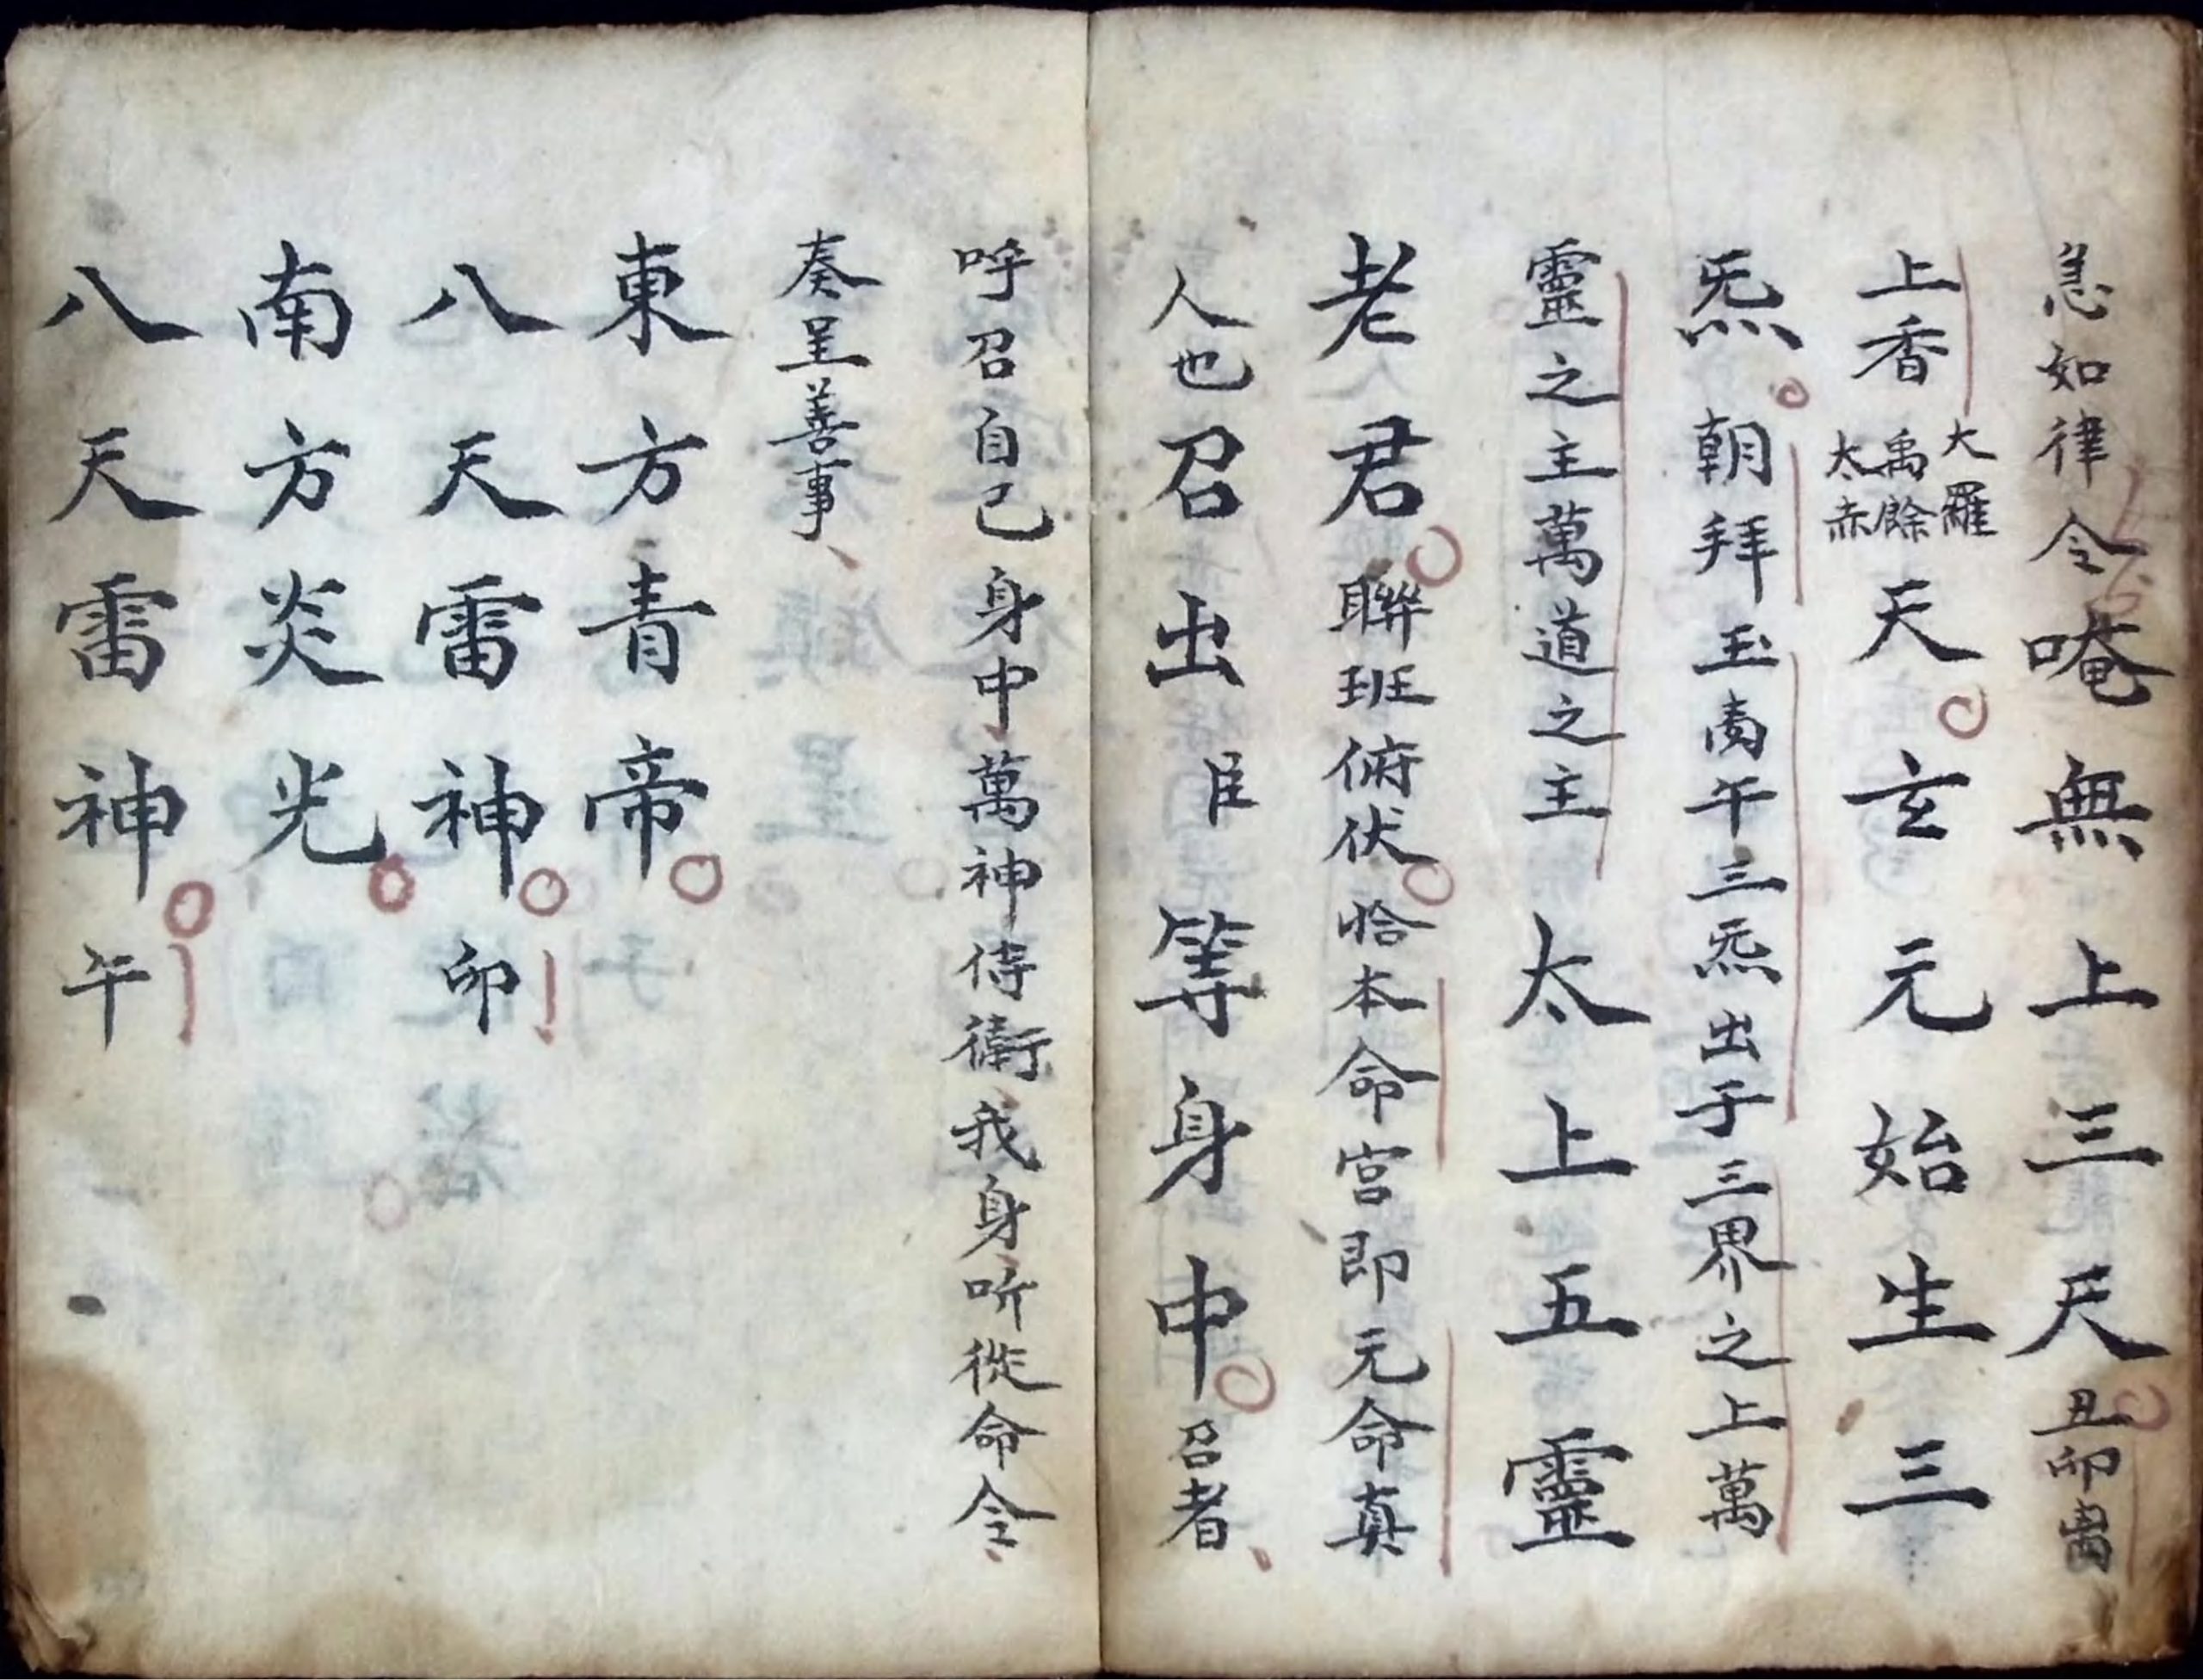 急如律令唵無上三天丑卯
上香大羅禹餘太赤天玄元始生三
炁朝拜玉午三炁出于三界之上萬
靈之主萬道之主太上五靈
老君聯班俯伏恰本命宮即元命真
人也召出臣等身中召者
呼召自己身中萬神侍衛我身听從命令
奏呈善事
東方青帝
八天雷神卯
南方炎光
八天雷神午